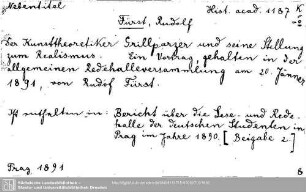 Nebentitel
Hist. acad. 1187 K
Fürst, Rudolf
Der Kunsttheoretiker Grillparzer und seine Stellung
zum Realismus. Ein Vortrag, gehalten in der
allgemeinen Redehalleversammlung am 20. Jänner
1891, von Rudolf Fürst.
Ist enthalten in: Bericht über die Lese- und Rede-
halle der deutschen Studenten in
Prag im Jahre 1890. [Beigabe 2.]
Prag 1891